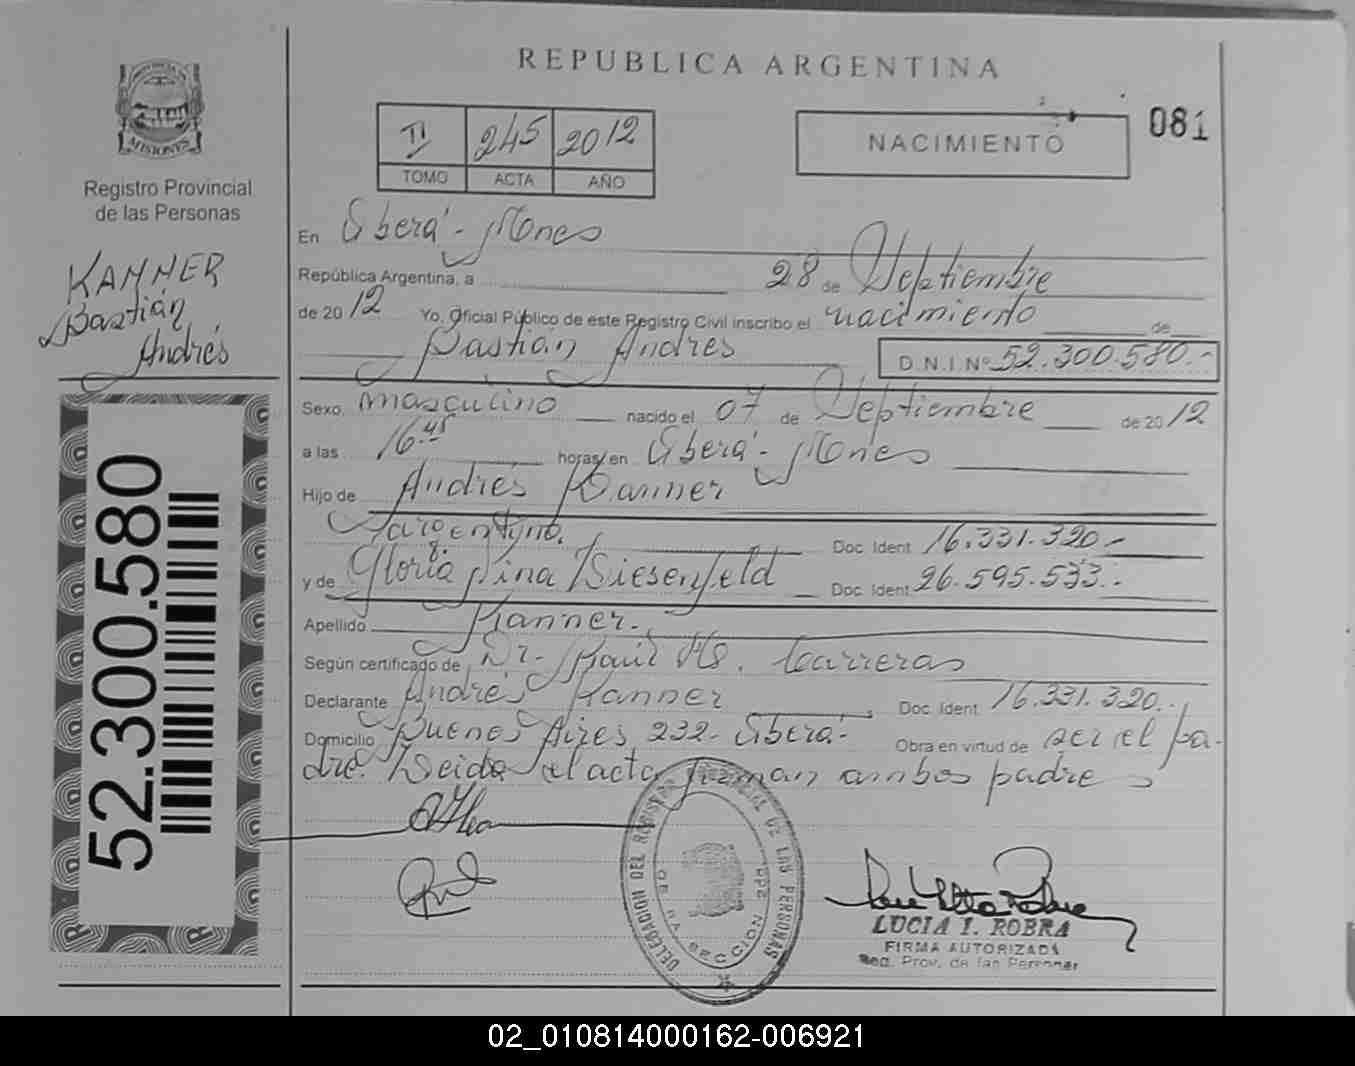 REPUBLICA ARGENTINA
PROVINCIA DE
MISIONES
Registro Provincial
de las Personas
KANNER
Bastián
Andrés
52.300.580
TII 245 2012
TOMO ACTA AÑO
NACIMIENTO
081
En Oberá - Mnes
República Argentina, a 28 de Septiembre
de 2012 Yo, Oficial Público de este Registro Civil inscribo el nacimiento de
Bastián Andrés D.N.I Nº 52.300.580.-
Sexo masculino nacido el 07 de Septiembre de 2012
a las 16.45 horas en Oberá - Mnes
Hijo de Andrés Kanner
argentino. Doc. Ident 16.331.320.-
y de Gloria Lina Wiesenfeld Doc. Ident 26.595.533.-
Apellido Kanner.
Según certificado de Dr. Raúl Carreras
Declarante Andrés Kanner Doc. Ident 16.331.320.
Domicilio Buenos Aires 232 - Oberá - Obra en virtud de ser el pa-
dre. Leida el acta firman ambos padres
DELEGACION DEL REGISTRO PROVINCIAL DE LAS PERSONAS
SECCION
LUCIA I. ROBRA
FIRMA AUTORIZADA
Reg. Prov. de las Personas
02_010814000162-006921